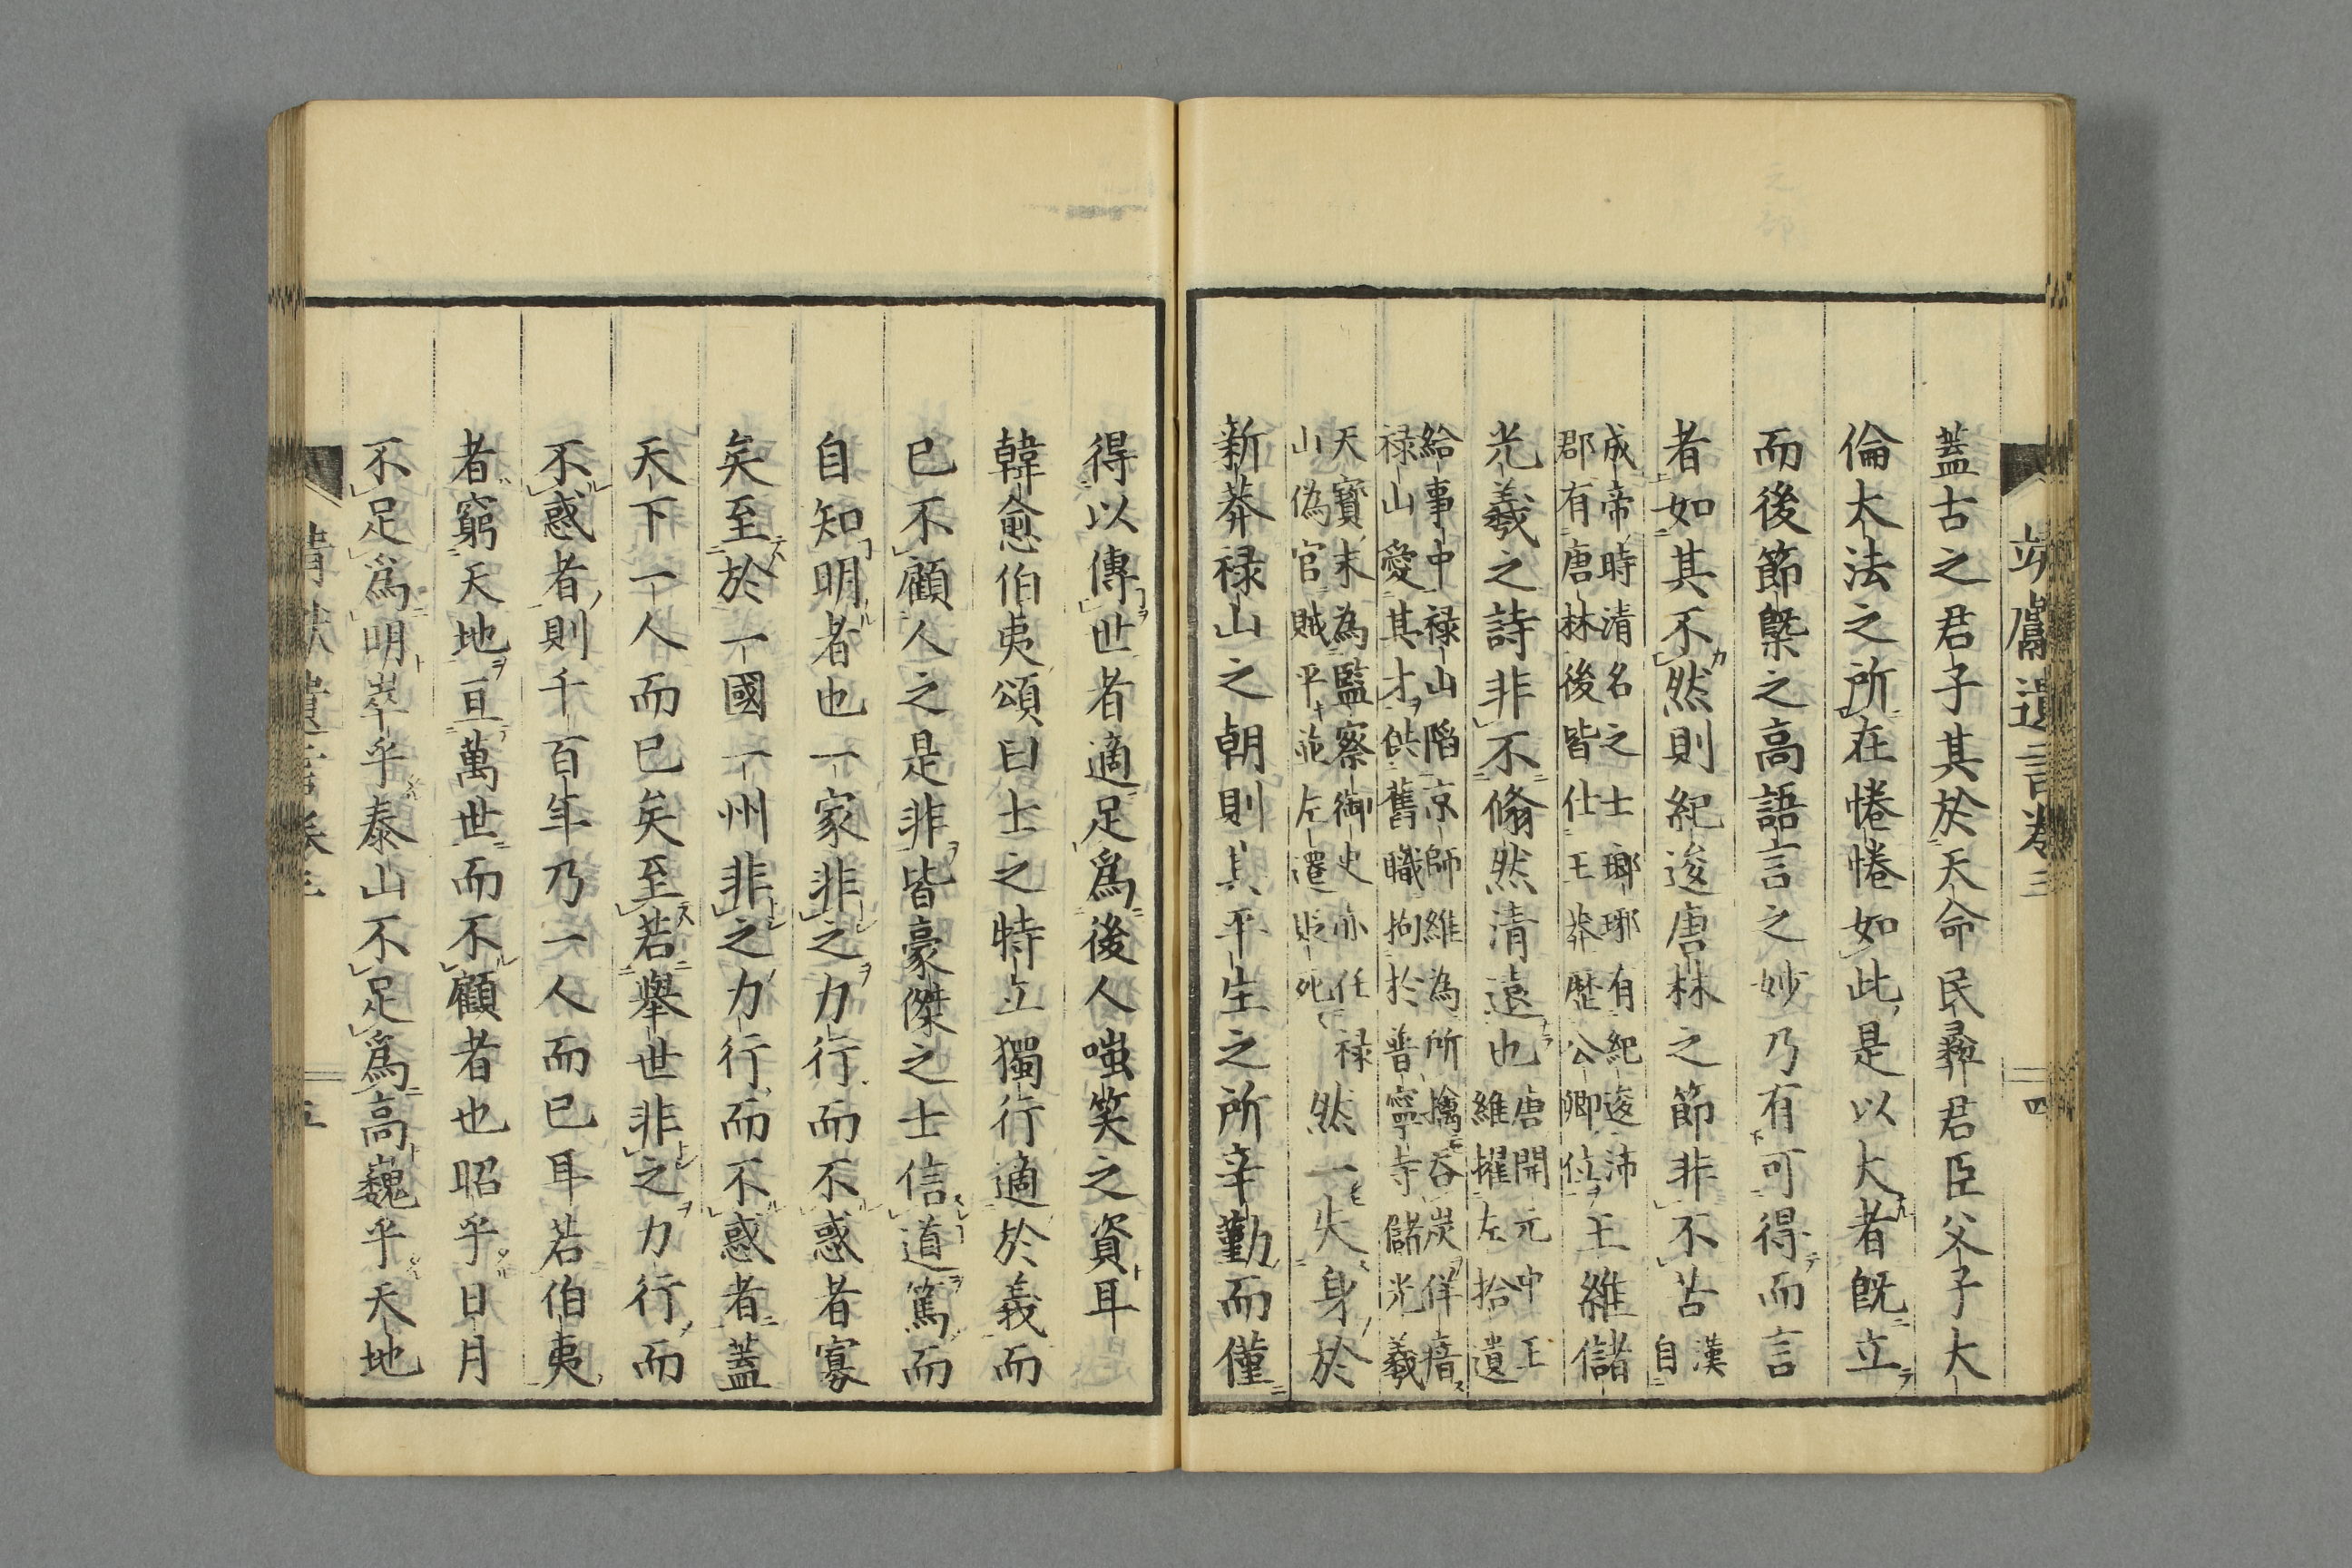 蓋古之君子其於天命民彝君臣父子大
倫大法之所在惓惓如此是以大者既立
而後節槩之高語言之妙乃有可得而言
者如其不然則紀逡唐林之節非不苦漢自
成帝時清名之士瑯琊有紀逡沛
郡有唐林後皆仕王莽歴公卿位王維儲
光羲之詩非不翛然清遠也唐開元中王
維擢左拾遺
給事中禄山陷京師維為所擒吞炭佯瘖
禄山愛其才供舊職拘於普寧寺儲光羲
天寶末為監察御史亦任禄
山偽官賊平並左遷貶死然一失身於
新莽禄山之朝則其平生之所辛勤而僅
得以傳世者適足爲後人嗤笑之資耳
韓愈伯夷頌曰士之特立獨行適於義而
已不顧人之是非皆豪傑之士信道篤而
自知明者也一家非之力行而不惑者寡
矣至於一國一州非之力行而不惑者蓋
天下一人而已矣至若舉世非之力行而
不惑者則千百年乃一人而已耳若伯夷
者窮天地亘萬世而不顧者也昭乎日月
不足爲明崒乎泰山不足爲高巍乎天地
遺言卷三
四